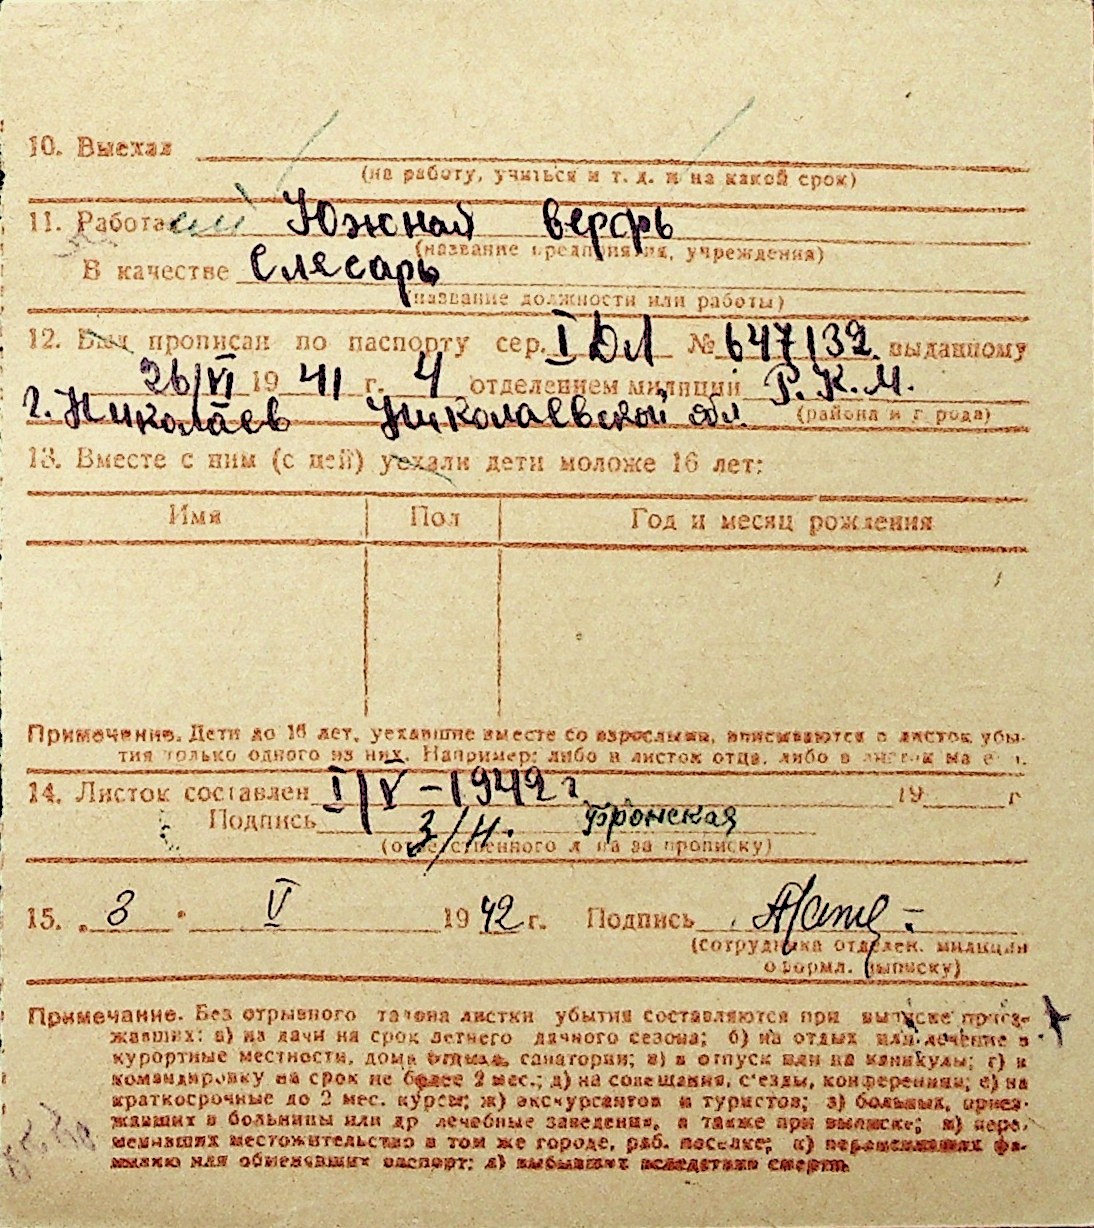 10. Выехал
(на работу, учиться и т. д. и на какой срок)
11. Работа Южная верфь
(название предприятия, учреждения)
В качестве Слесарь
(название должности или работы)
12. Был прописан по паспорту сер. I ДЛ № 647132 выданному
26/VI 1941 г. 4 отделением милиции Р.К.М.
г. Николаев Николаевской обл. (района и города)
13. Вместе с ним (с ней) уехали дети моложе 16 лет:
Имя Пол Год и месяц рождения
Примечение. Дети до 16 лет, уехавшие вместе со взрослыми, вписываются в листок убы-
тия только одного из них. Например: либо в листок отца, либо в листок ма
14. Листок составлен I/V – 1942 г 19 г
Подпись З/Н. Бронская
(ответственного лица за прописку)
15. 3 V 1942 г. Подпись
(сотрудника отделен. милиции
оформл. выписку)
Примечание. Без отрывного талона листки убытия составляются при выписке приез-
жавших: а) на дачи на срок летнего дачного сезона; б) на отдых или лечение в
курортные местности, дома отдыха, санатории; в) в отпуск или на каникулы; г) в
командировку на срок не более 2 мес.; д) на совещания, с'езды, конференции; е) на
краткосрочные до 2 мес. курсы; ж) экскурсантов и туристов; з) больных, приез-
жавших в больницы или др лечебные заведения, а также при выписке; и) пере-
менивших местожительство в том же городе, раб. поселке; к) переменивших фа-
милию или обменявших паспорт; л) выбывших вследствие смерти.